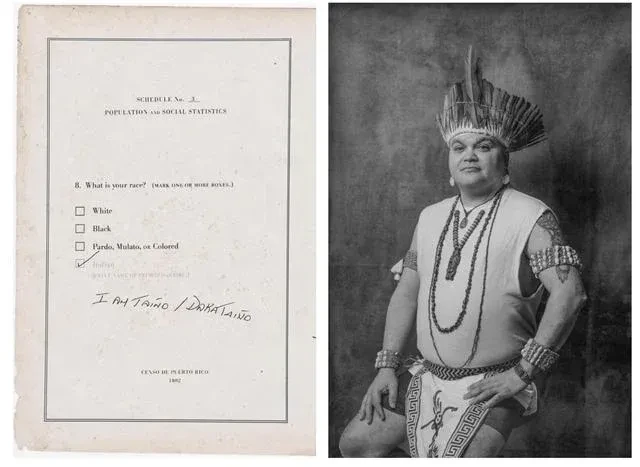 SCHEDULE No. 3
POPULATION AND SOCIAL STATISTICS
8. What is your race? (MARK ONE OR MORE BOXES.)
White
Black
Pardo, Mulato, OR Colored
Indian
I AM TAÍNO / DAKA TAÍNO
CENSO DE PUERTO RICO
1802